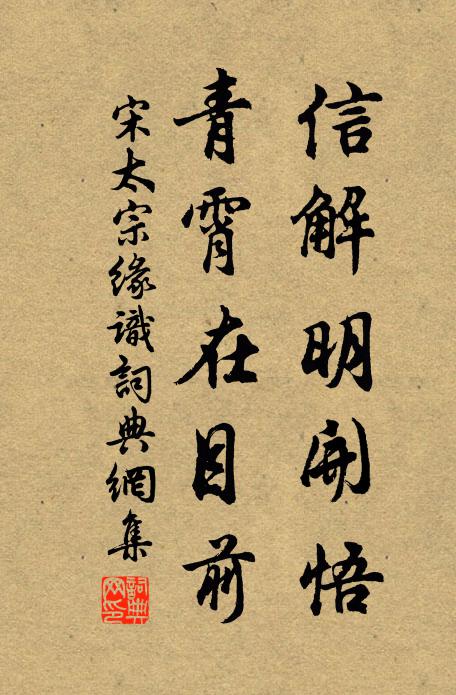 信解明開悟
青霄在目前
宋太宗緣識詞典網集
詞典網印